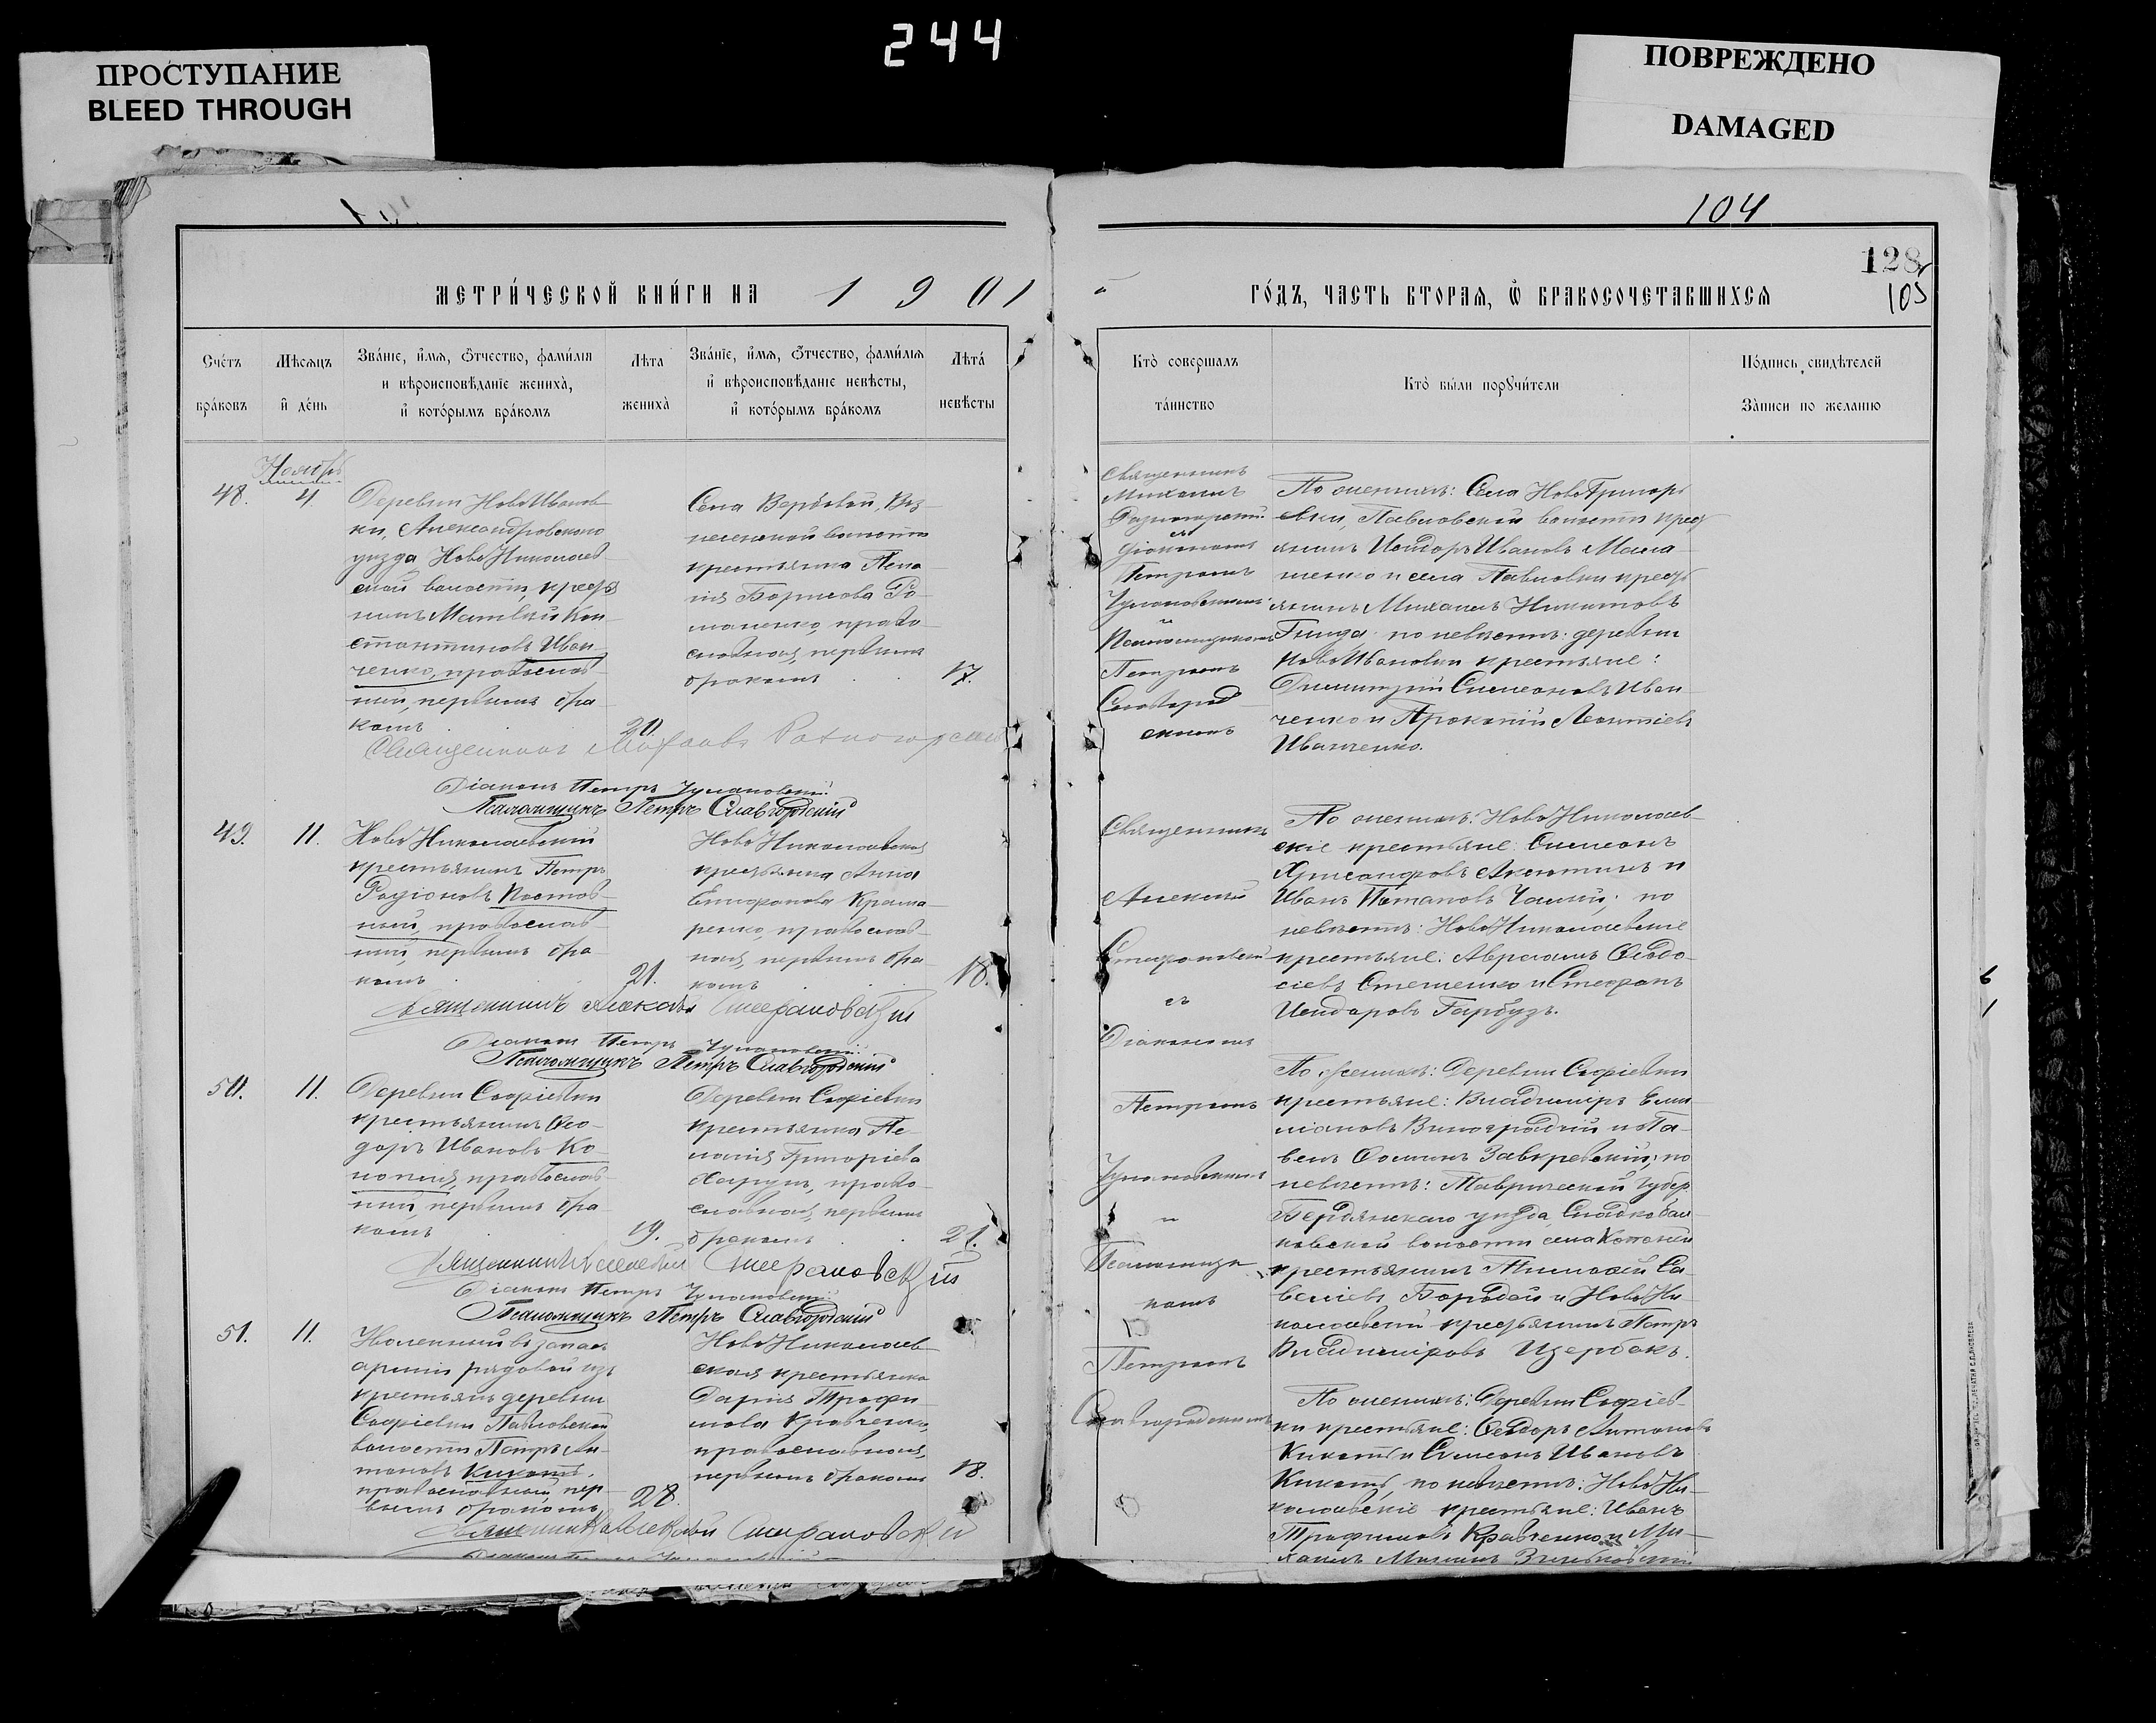 244
ПРОСТУПАНИЕ
BLEED THROUGH
ПОВРЕЖДЕНО
DAMAGED
104
128
105
МЕТРИ́ЧЕСКОЙ КНИ́ГИ НА 1901
ГО́ДЪ, ЧАСТЬ ВТОРАЯ, Ѡ БРАКОСОЧЕТАВШИХСЯ
Сче́тъ
бра́ковъ
Мѣсяцъ
и҆ де́нь
Зва́нїе, и҆мѧ, ѻтчество, фами́лїѧ
и вѣроисповѣ́данїе жениха̀,
и҆ кото́рымъ бра́комъ
Лѣта
жениха̀
Зва́нїе, и҆мѧ, ѻтчество, фами́лїѧ
и҆ вѣроисповѣ́данїе невѣ́сты,
и҆ кото́рымъ бра́комъ
Лѣта́
невѣ́сты
Кто̀ совершалъ
та́инство
Кто̀ бы́ли порꙋчи́тели
По́дпись свидѣ́телей
За́писи по желанію
Ноябрь
48.
4.
Деревни НовоИванов-
ки, Александровского
уѣзда НовоНиколаев
ской волости, кресть
нинъ Матвѣй Кон-
стантиновъ Иван-
ченко, православ-
ный, первымъ бра-
комъ
20.
Села Вербовой, Воз-
несенской волости
крестьянка Пела-
гія Борисова Ро-
маненко, право-
славная, первымъ
бракомъ
17.
Священникъ
Михаилъ
Разногорскій
съ
діакономъ
Петромъ
Чулановскимъ
и
Псаломщикомъ
Петромъ
Славгород
скимъ
По женихѣ: Села НовоГригорь
евки, Павловской волости крест
янинъ Исидоръ Ивановъ Мала-
шенко и села Павловки кресть
янинъ Михаилъ Никитовъ
по невѣстѣ: деревни
НовоИвановки крестьяне:
Димитрій Симеоновъ Иван-
ченко и Прокопій Леонтіевъ
Иванченко.
Діаконъ Петръ Чулановскій
Псаломщикъ Петръ Славгородскій
49.
11.
НовоНиколаевскій
крестьянинъ Петръ
Родіоновъ Постов-
ный, православ-
ный, первымъ бра-
комъ
21.
НовоНиколаевская
крестьянка Анна
Епифанова Крама-
ренко, православ-
ная, первымъ бра-
комъ
18.
Священникъ
Алексій
Стефановскій
съ
Діакономъ
Петромъ
Чулановскимъ
и
Псаломщи
комъ
Петромъ
Славгородскимъ
По женихѣ: НовоНиколаев-
скіе крестьяне: Симеонъ
Хрисанфовъ Аксютинъ и
Иванъ Потаповъ Чалый; по
невѣстѣ: НовоНиколаевскіе
крестьяне: Авраамъ Ѳеодо-
сіевъ Стешенко и Стефанъ
Исидоровъ Гарбузъ.
Священникъ Алексѣй Стефановскій
Діаконъ Петръ Чулановскій
Псаломщикъ Петръ Славгородскій
50.
11.
Деревни Софіевки
крестьянинъ Ѳео-
доръ Ивановъ Ко-
нопля, православ-
ный, первымъ бра-
комъ
19.
Деревни Софіевки
крестьянка Пе-
лагія Григоріева
право-
славная, первымъ
бракомъ
21.
По женихѣ: Деревни Софіевки
крестьяне: Владимиръ Еми-
ліановъ Виноградный и Па-
велъ Ѳоминъ по
невѣстѣ: Таврической губер.
Бердянскаго уѣзда,
волости села
крестьянинъ Тимофей Са-
веліевъ Бородай и НовоНи-
колаевскій крестьянинъ Петръ
Владиміровъ Щербакъ.
Священникъ Алексѣй Стефановскій
Діаконъ Петръ Чулановскій
Псаломщикъ Петръ Славгородскій
51.
11.
Уволенный въ запасъ
арміи рядовой изъ
крестьянъ деревни
Софіевки Павловской
волости Петръ Ан-
тоновъ Кикоть,
православный, пер-
вымъ бракомъ,
28.
НовоНиколаев-
ская крестьянка
Дарія Трофи-
мова Кравченко,
православная,
первымъ бракомъ
18.
По женихѣ: Деревни Софіев-
ки крестьяне: Ѳеодоръ Антоновъ
Кикоть и Симеонъ Ивановъ
Кикоть, по невѣстѣ: НовоНи-
колаевскіе крестьяне: Иванъ
Трофимовъ Кравченко и Ми-
хаилъ
Священникъ Алексѣй Стефановскій
Діаконъ Петръ Чулановскій